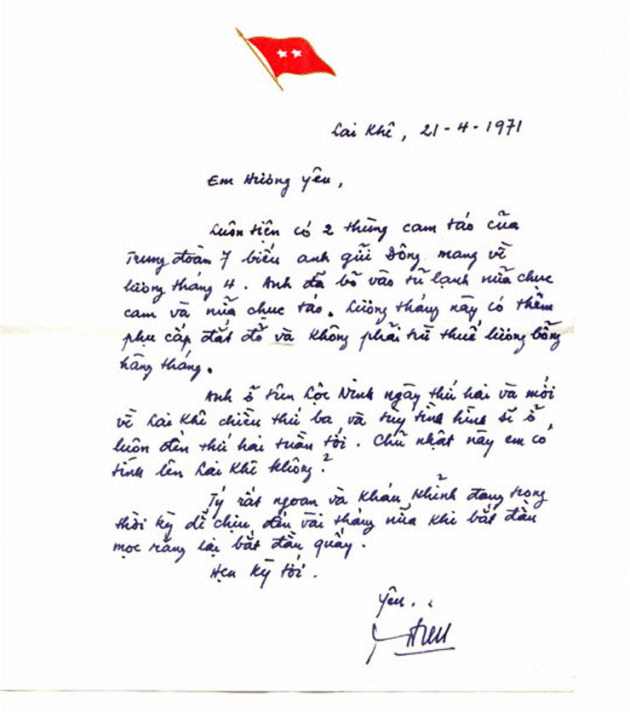 Lai Khê, 21-4-1971
Em Hương Yên,
Luôn tiện có 2 thùng cam táo của
Trung đoàn 7 biếu anh gửi Đông mang về
lương tháng 4. Anh đã bỏ vào tủ lạnh nửa chục
cam và nửa chục táo. Lương tháng này có thêm
phụ cấp đắt đỏ và không phải trừ thuế lương bổng
hàng tháng.
Anh ở trên Lộc Ninh ngày thứ hai và mới
về Lai Khê chiều thứ ba và tùy tình hình sẽ ở
luôn đến thứ hai tuần tới. Chủ nhật này em có
tính lên Lai Khê không?
Tý rất ngoan và kháu khỉnh đang trong
thời kỳ dễ chịu, đến vài tháng nữa khi bắt đầu
mọc răng lại bắt đầu quấy.
Hẹn kỳ tới.
Yêu..